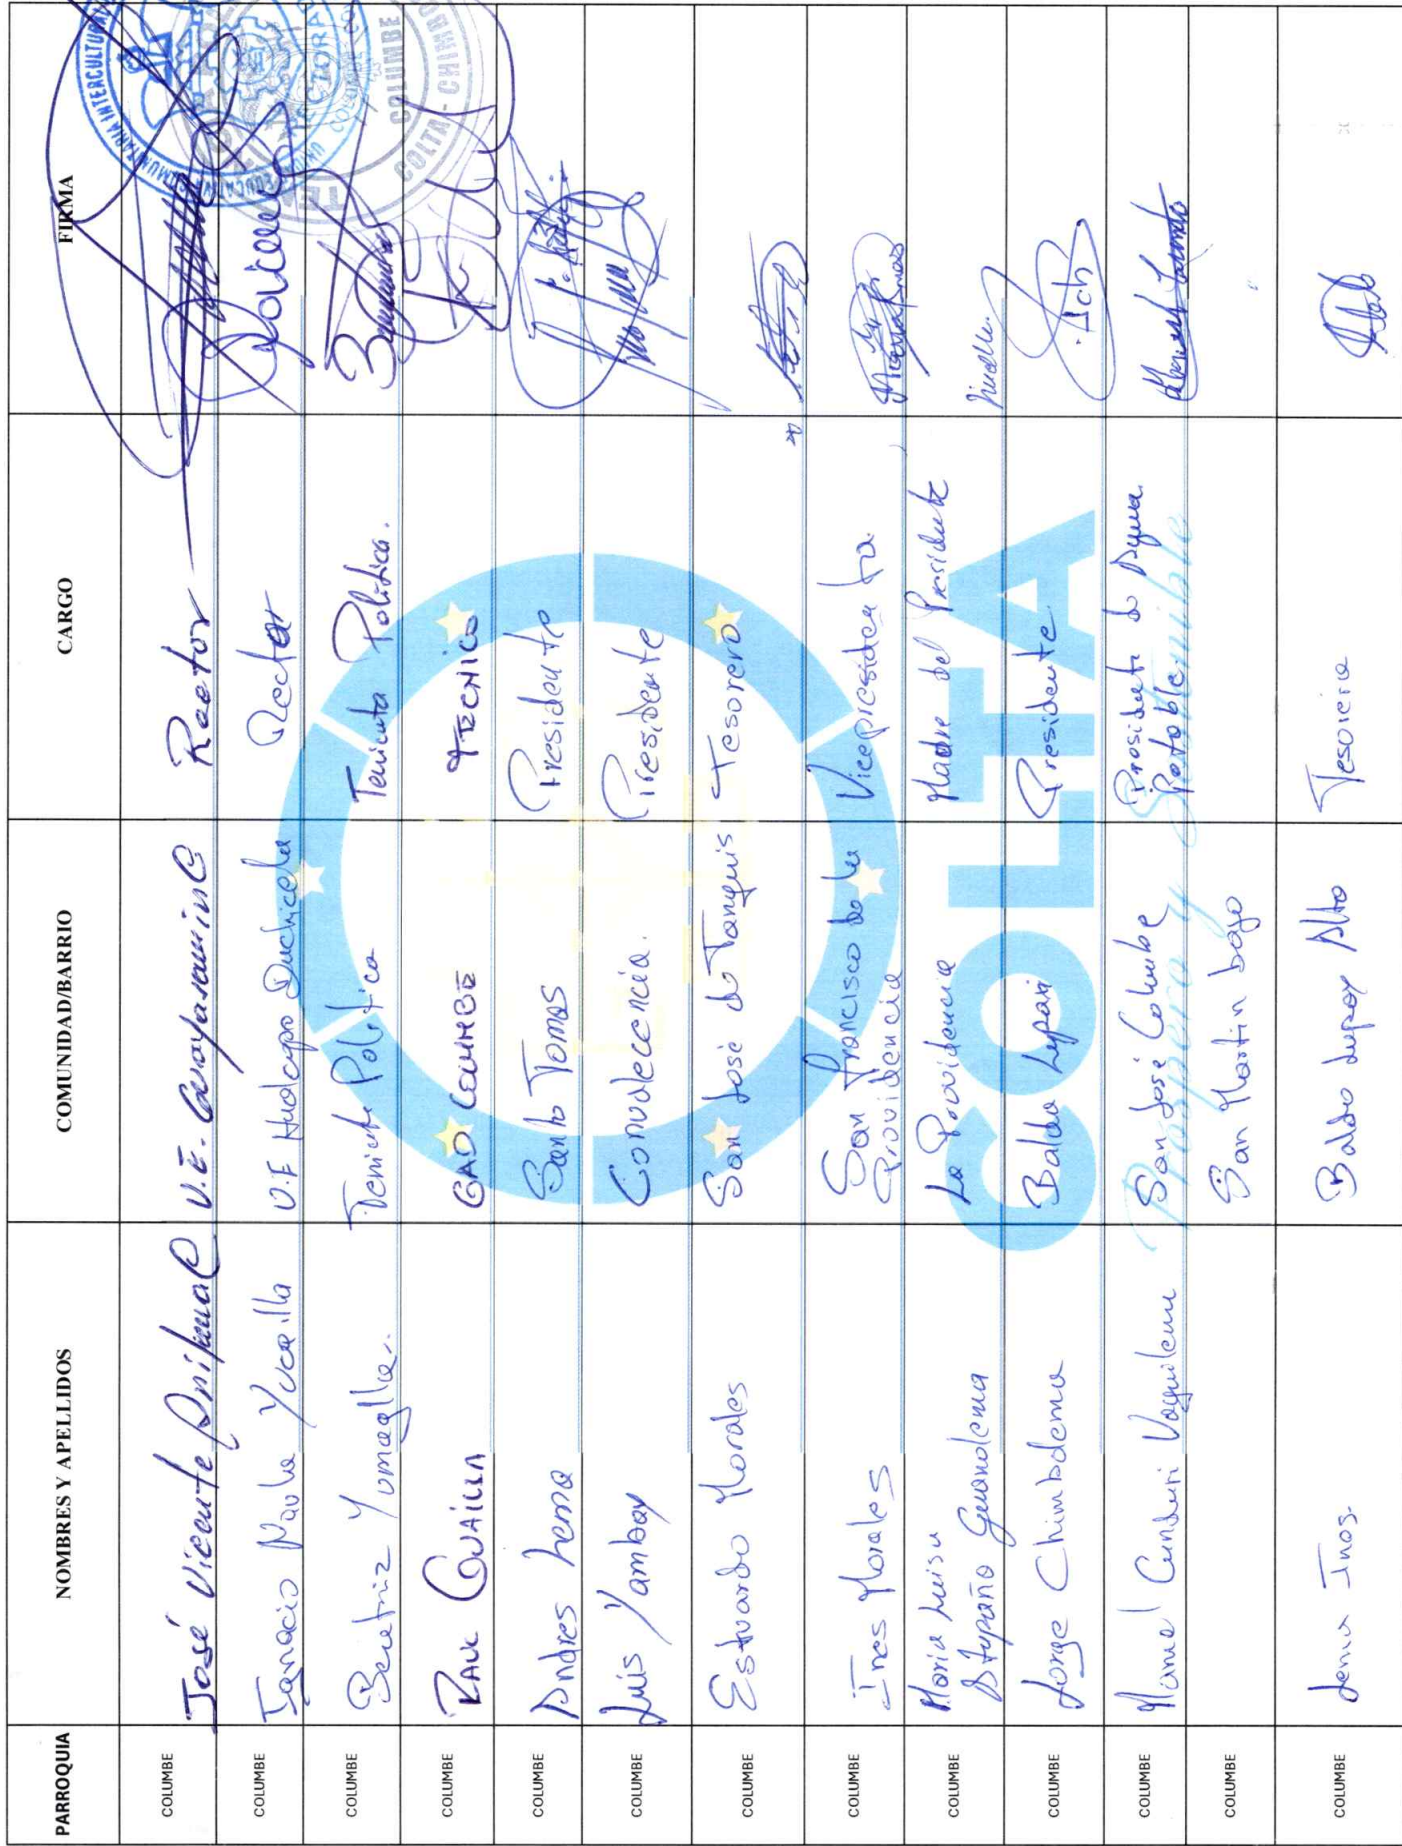 PARROQUIA NOMBRES Y APELLIDOS COMUNIDAD/BARRIO CARGO FIRMA
COLUMBE José Vicente U.E. Rector
COLUMBE Ignacio Yucailla U.E Hualcopo Duchicela Rector
COLUMBE Beatriz Yumaglla. Teniente Politica Tenienta Politica.
COLUMBE RAUL GUAILLA GAD COLUMBE TECNICO
COLUMBE Andres Lema Santo Tomas Presidente
COLUMBE Luis Yambay Convalecencia. Presidente
COLUMBE Estuardo Morales San José de Tanquis Tesorero
COLUMBE Ines Morales San Francisco de la
Providencia Vicepresidenta
COLUMBE Maria Luisa
Guanolema La Providencia Madre del Presidente
COLUMBE Jorge Chimbolema Balda Lupaxi Presidente
COLUMBE Manuel San José Columbe Presidente de Agua
Potable
COLUMBE San Martin bajo
COLUMBE Lema Inos. Baldo Lupaxy Alto Tesorera
COLTA
Próspera y Sostenible
COMUNITARIA INTERCULTURAL
UNIDAD EDUCATIVA
RECTORADO
COLUMBE
COLTA - CHIMBO